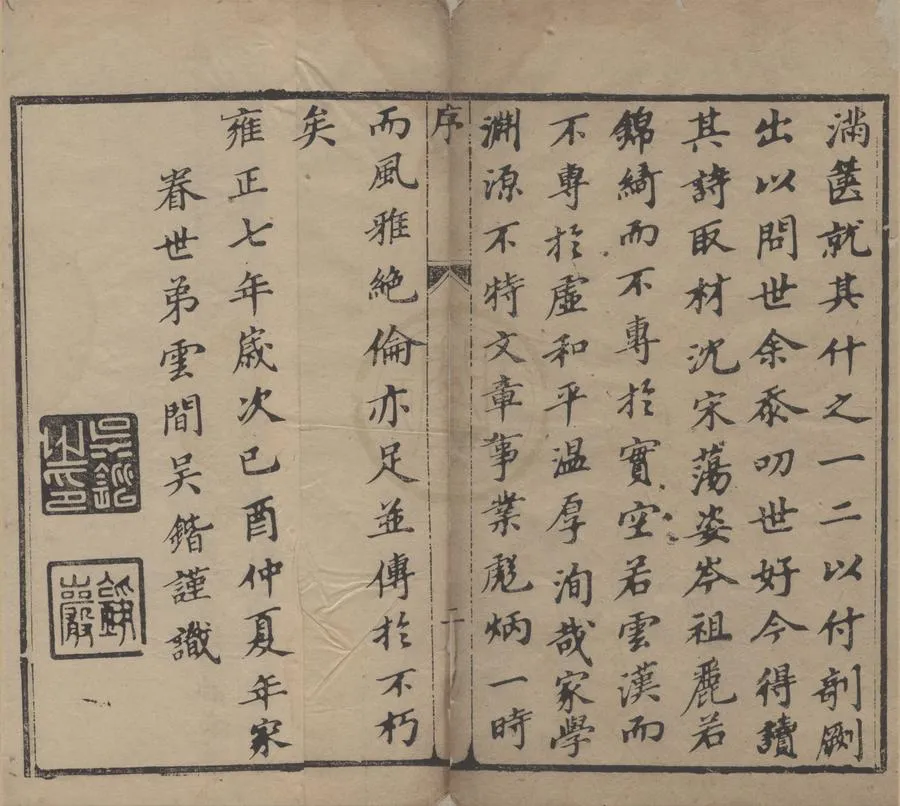 滿篋就其什之一二以付剞劂
出以問世余忝叨世好今得讀
其詩取材沈宋蕩姿岑祖麗若
錦綺而不專於實空若雲漢而
不專於虛和平溫厚洵哉家學
淵源不特文章事業彪炳一時
序
二
而風雅絕倫亦足並傳於不朽
矣
雍正七年歲次己酉仲夏年家
眷世弟雲間吴鍇謹識